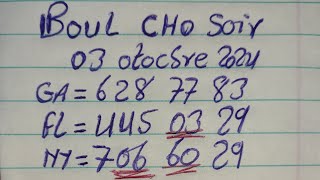 BOUL CHO Soir
03 otocbre 2024
GA = 628 77 83
FL = 445 03 29
NY = 706 60 29